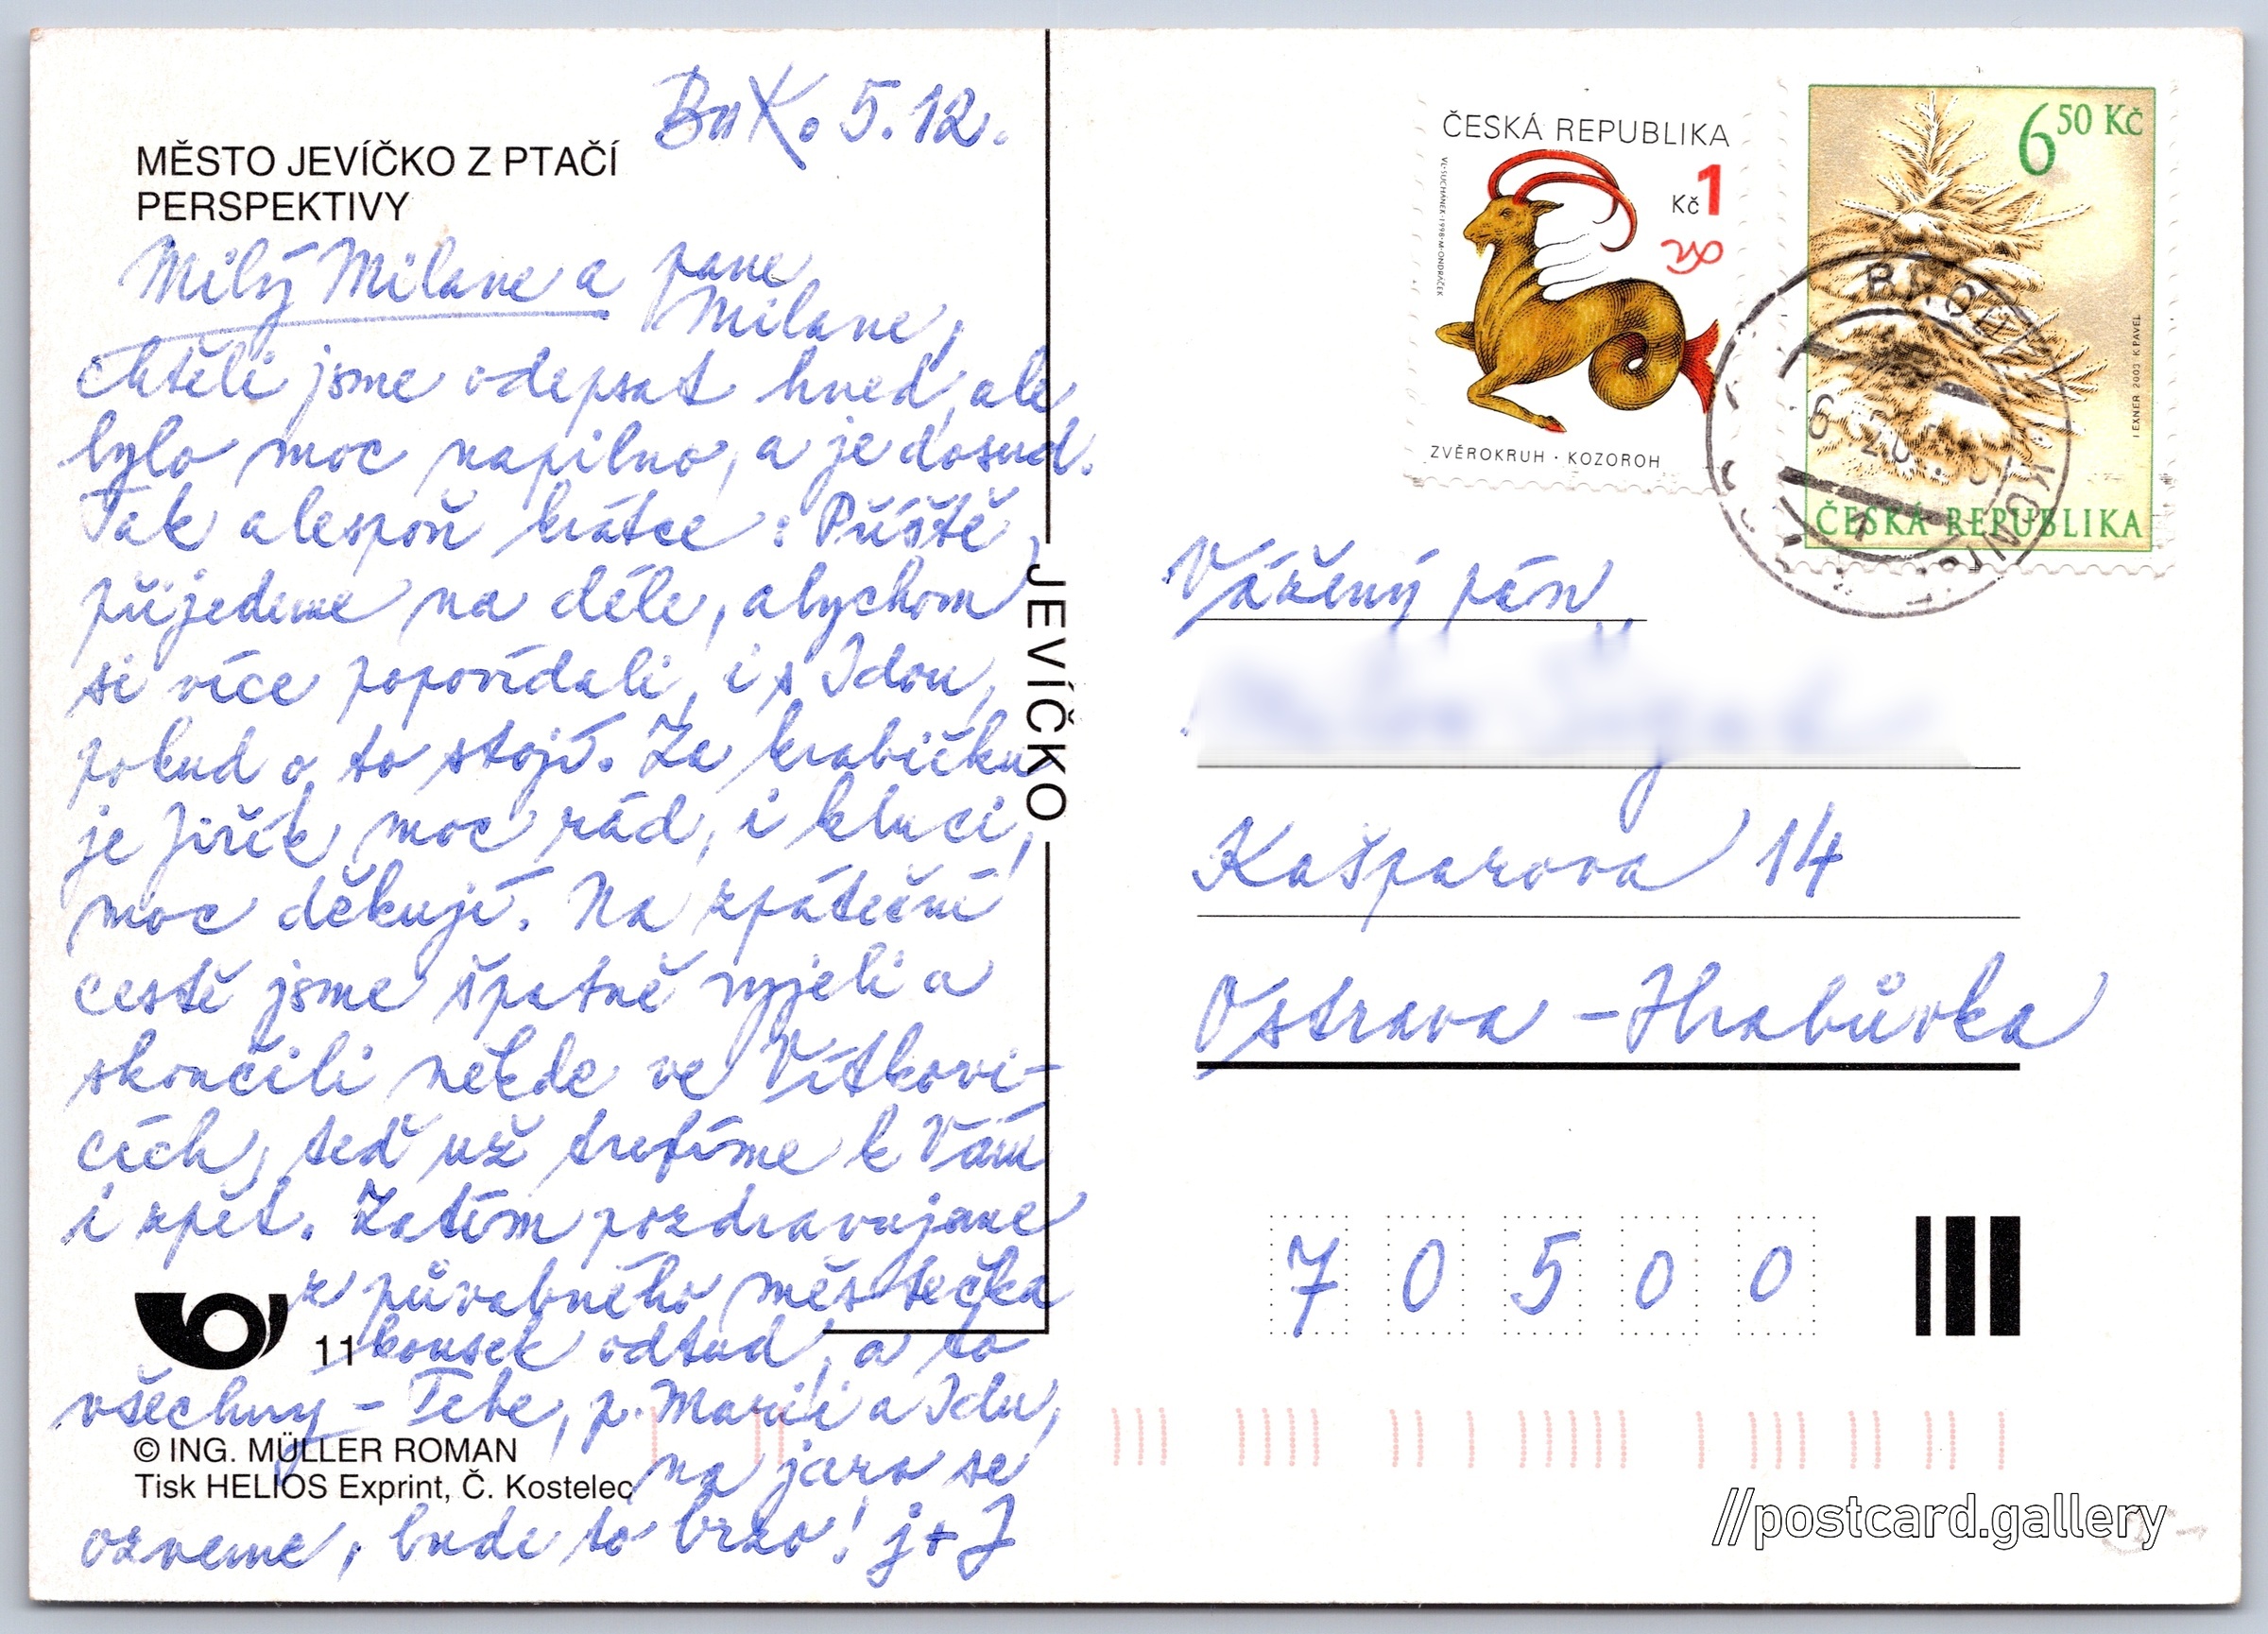 BnK. 5.12.
MĚSTO JEVÍČKO Z PTAČÍ
PERSPEKTIVY
Milý Milane a pane
Milane,
chtěli jsme odepsat hned, ale
bylo moc napilno, a je dosud.
Tak alespoň krátce: Příště
přijedeme na déle, abychom
si více popovídali, i s Idou,
pokud o to stojí. Za krabičku
je Jiřík moc rád, i kluci,
moc děkují. Na zpáteční
cestě jsme špatně vyjeli a
skončili někde ve Vítkovi-
cích, teď už trefíme k Vám
i zpět. Zatím pozdravujeme
z půvabného městečka
kousek odtud, a to
všechny - Tebe, p. Marii a Idu,
na jaro se
ozveme, bude to brzo! j+J
11
© ING. MÜLLER ROMAN
Tisk HELIOS Exprint, Č. Kostelec
JEVÍČKO
ČESKÁ REPUBLIKA
Kč 1
VL. SUCHÁNEK · 1998 · M. ONDRÁČEK
ZVĚROKRUH · KOZOROH
6 50 Kč
I EXNER 2003 K PAVEL
ČESKÁ REPUBLIKA
Vážený pán
Kašparova 14
Ostrava - Hrabůvka
7 0 5 0 0
//postcard.gallery